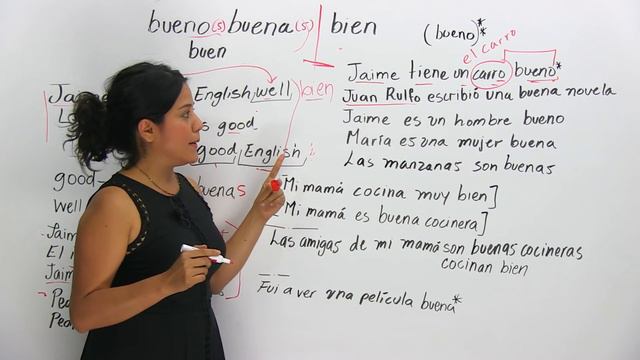 bueno(s) buena(s) bien
buen
(bueno)*
el carro
Jaime tiene un carro bueno*
Juan Rulfo escribió una buena novela
Jaime es un hombre bueno
María es una mujer buena
Las manzanas son buenas
Mi mamá cocina muy bien]
Mi mamá es buena cocinera]
Las amigas de mi mamá son buenas cocineras
cocinan bien
Fui a ver una película buena*
English, well
good
good English
good
buenas
well
El